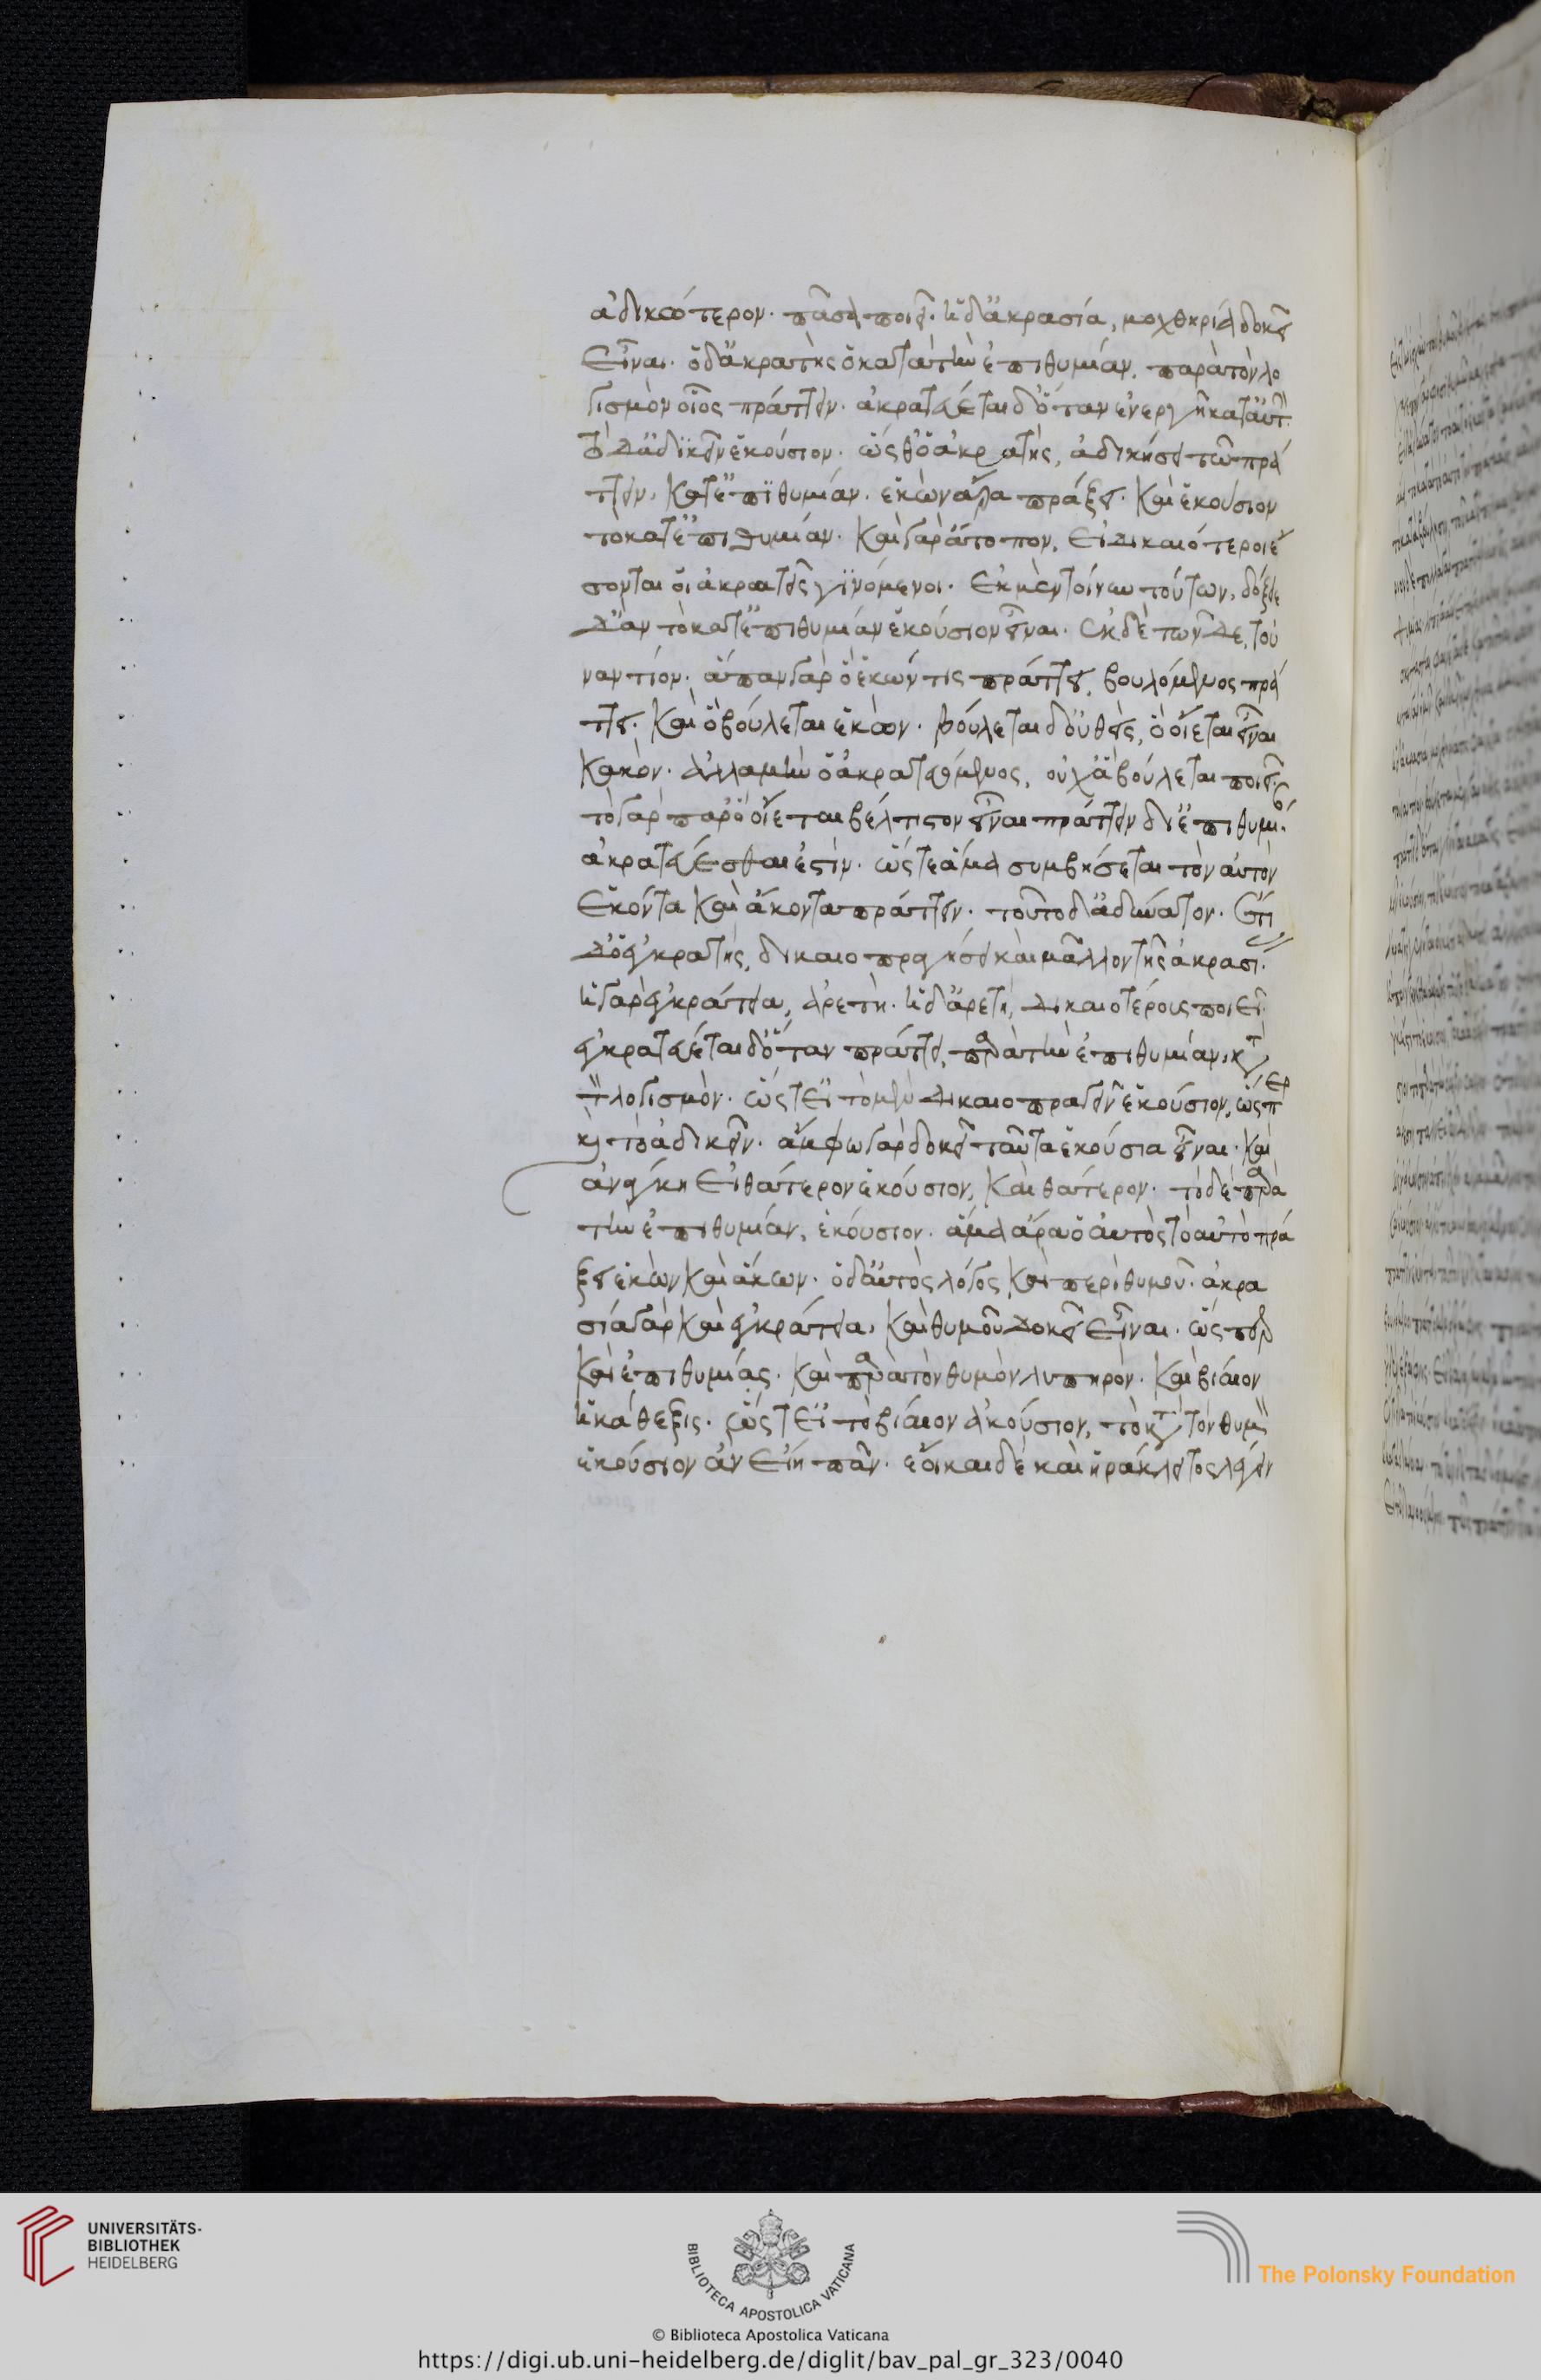 ἀδικώτερον· πᾶσα ποιεῖ· ἡ δ' ἀκρασία, μοχθηρία δοκεῖ
εἶναι· ὁ δ' ἀκρατὴς ὁ κατὰ τὴν ἐπιθυμίαν, παρὰ τὸν λο
γισμὸν οἷος πράττειν· ἀκρατεύεται δ' ὅταν ἐνεργῆ κατ' αὐτ̀
τὸ δ' ἀδικεῖν ἑκούσιον· ὥσθ' ὁ ἀκρατής, ἀδικήσει τῶ πρά
ττειν, κατ' ἐπιθυμίαν· ἑκὼν ἄρα πράξει· καὶ ἑκούσιον
τὸ κατ' ἐπιθυμίαν· καὶ γὰρ ἄτοπον, εἰ δικαιότεροι ἔ
σονται οἱ ἀκρατεῖς γινόμενοι· ἐκ μὲν τοίνυν τούτων, δόξειε
δ' ἂν τὸ κατ' ἐπιθυμίαν ἑκούσιον εἶναι· ἐκ δὲ τῶνδε, τοὐ
ναντίον· ἅπαν γὰρ ὃ ἑκών τις πράττει, βουλόμενος πρά
ττει· καὶ ὃ βούλεται ἑκὼν· βούλεται δ' οὐθεὶς, ὃ οἴεται εἶναι
κακόν· ἀλλὰ μὴν ὁ ἀκρατευόμενος, οὐχ ἃ βούλεται ποιεῖ·
τὸ γὰρ παρ' ὃ οἴεται βέλτιστον εἶναι πράττειν δι' ἐπιθυμί·
ἀκρατεύεσθαι ἐστίν· ὥστε ἅμα συμβήσεται τὸν αὐτὸν
ἑκόντα καὶ ἄκοντα πράττειν· τοῦτο δ' ἀδύνατον· ἔτι
δ' ὁ ἐγκρατής, δικαιοπραγήσει καὶ μᾶλλον τῆς ἀκρασί·
ἡ γὰρ ἐγκράτεια, ἀρετή· ἡ δ' ἀρετὴ, δικαιοτέρους ποιεῖ·
ἐγκρατεύεται δ' ὅταν πράττει, παρὰ τὴν ἐπιθυμίαν κατὰ
τὸν λογισμὸν· ὥστ' εἰ τὸ μὲν δικαιοπραγεῖν ἑκούσιον, ὥσπερ
καὶ τὸ ἀδικεῖν· ἄμφω γὰρ δοκεῖ ταῦτα ἑκούσια εἶναι· καὶ
ἀνάγκη εἰ θάτερον ἑκούσιον, καὶ θάτερον· τὸ δὲ παρὰ
τὴν ἐπιθυμίαν, ἑκούσιον· ἅμα ἄρα ὁ αὐτὸς τὸ αὐτὸ πρά
ξει ἑκὼν καὶ ἄκων· ὁ δ' αὐτὸς λόγος καὶ περὶ θυμοῦ· ἀκρα
σία γὰρ καὶ ἐγκράτεια, καὶ θυμοῦ δοκεῖ εἶναι· ὥσπερ
καὶ ἐπιθυμίας· καὶ παρὰ τὸν θυμὸν λυπηρὸν· καὶ βίαιον
ἡ κάθεξις· ὥστ' εἰ τὸ βίαιον ἀκούσιον, τὸ κατὰ τὸν θυμὸν
ἑκούσιον ἂν εἴη πᾶν· ἔοικαι δὲ καὶ ἡράκλειτος λέγειν
UNIVERSITÄTS-
BIBLIOTHEK
HEIDELBERG
BIBLIOTECA APOSTOLICA VATICANA
The Polonsky Foundation
© Biblioteca Apostolica Vaticana
https://digi.ub.uni-heidelberg.de/diglit/bav_pal_gr_323/0040